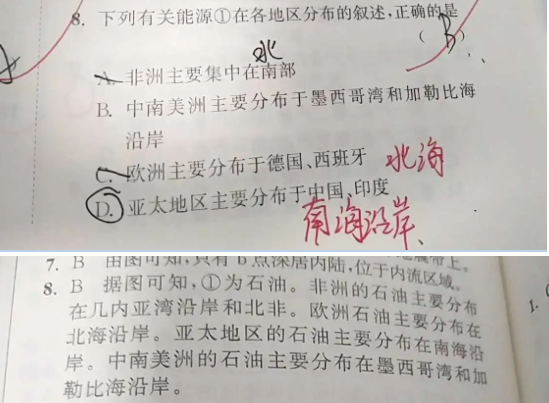 8. 下列有关能源①在各地区分布的叙述,正确的是
( B )
北
A. 非洲主要集中在南部
B. 中南美洲主要分布于墨西哥湾和加勒比海
沿岸
C. 欧洲主要分布于德国、西班牙 北海
D. 亚太地区主要分布于中国、印度
南海沿岸、
7. B 由图可知,只有 b 点深居内陆,位于内流区域。
8. B 据图可知,①为石油。非洲的石油主要分布
在几内亚湾沿岸和北非。欧洲石油主要分布在
北海沿岸。亚太地区的石油主要分布在南海沿
岸。中南美洲的石油主要分布在墨西哥湾和加
勒比海沿岸。
1.